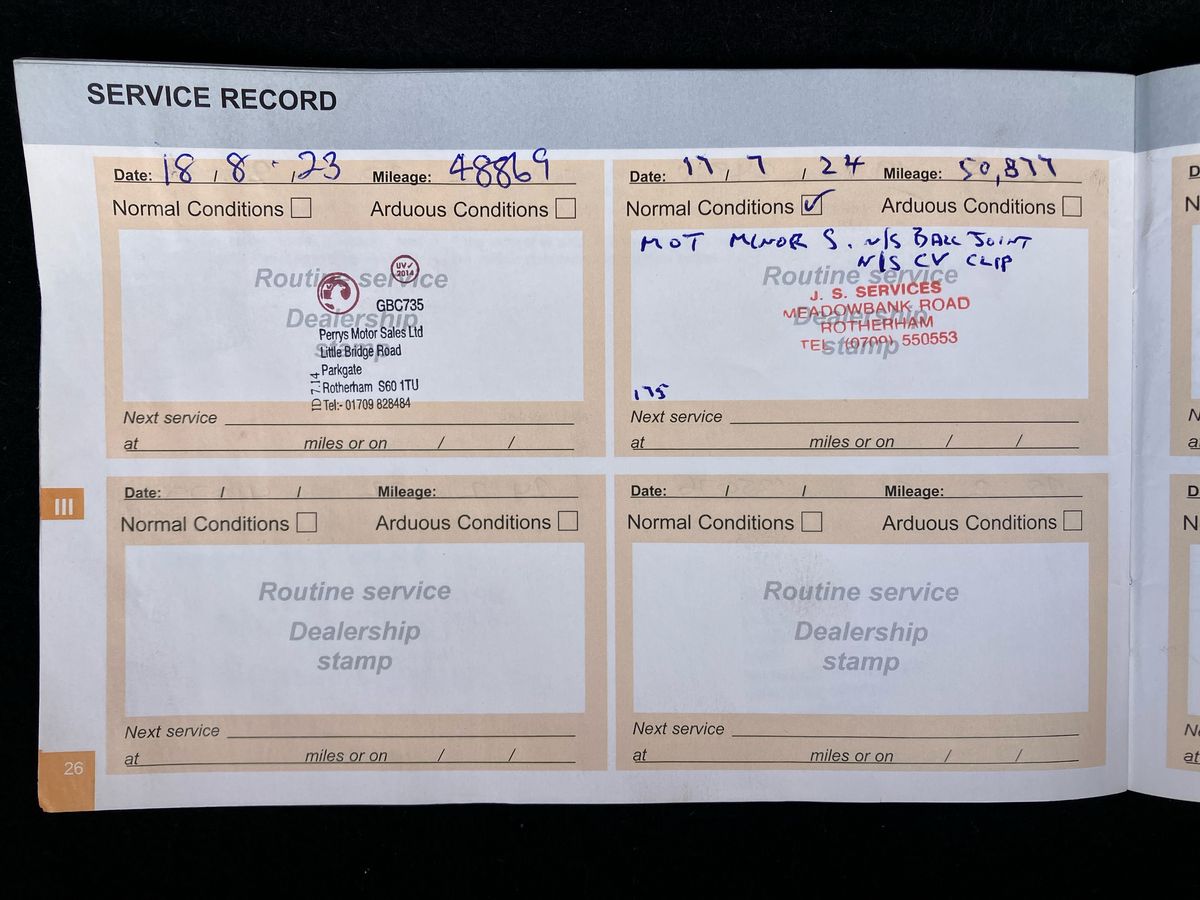 SERVICE RECORD
Date: 18 / 8 / 23 Mileage: 48869
Normal Conditions Arduous Conditions
Routine service
UV✓
2014
GBC735
Dealership
stamp
Perrys Motor Sales Ltd
Little Bridge Road
Parkgate
Rotherham S60 1TU
Tel:- 01709 828484
ID 7.14
Next service
at miles or on / /
Date: 17 / 7 / 24 Mileage: 50,877
Normal Conditions ✓ Arduous Conditions
MOT MINOR S. N/S BALL JOINT
N/S CV CLIP
Routine service
Dealership
stamp
J. S. SERVICES
MEADOWBANK ROAD
ROTHERHAM
TEL (0709) 550553
175
Next service
at miles or on / /
III
Date: / / Mileage:
Normal Conditions Arduous Conditions
Routine service
Dealership
stamp
Next service
at miles or on / /
Date: / / Mileage:
Normal Conditions Arduous Conditions
Routine service
Dealership
stamp
Next service
at miles or on / /
26